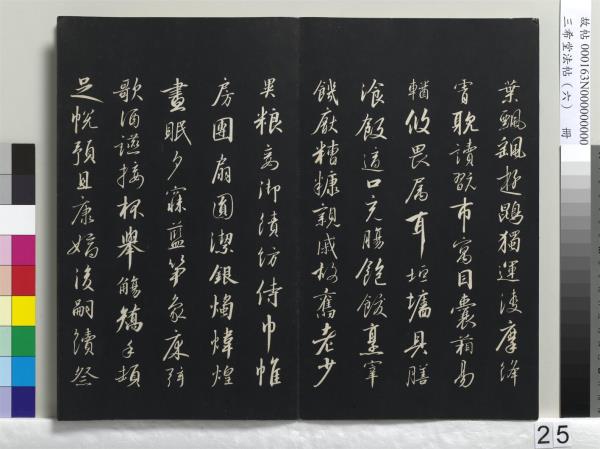 葉飄飖遊鵾獨運凌摩絳
霄耽讀翫市寓目囊箱易
輶攸畏属耳垣墻具膳
飡飯適口充腸飽飫烹宰
饑厭糟糠親戚故舊老少
異粮妾御績紡侍巾帷
房團扇圓潔銀燭煒煌
晝眠夕寐藍笋象床弦
歌酒讌接杯舉觴矯手頓
足悅預且康嫡後嗣續祭
故帖 000163N000000000
三希堂法帖（六） 冊
25